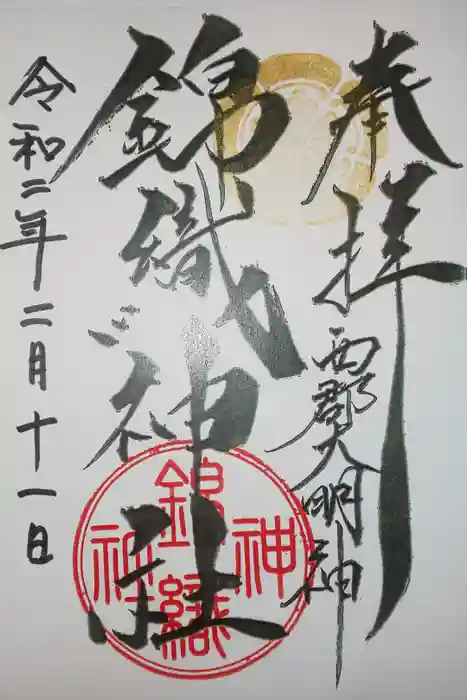 奉拝
西郡大明神
錦織神社
令和二年二月十一日
錦織神社